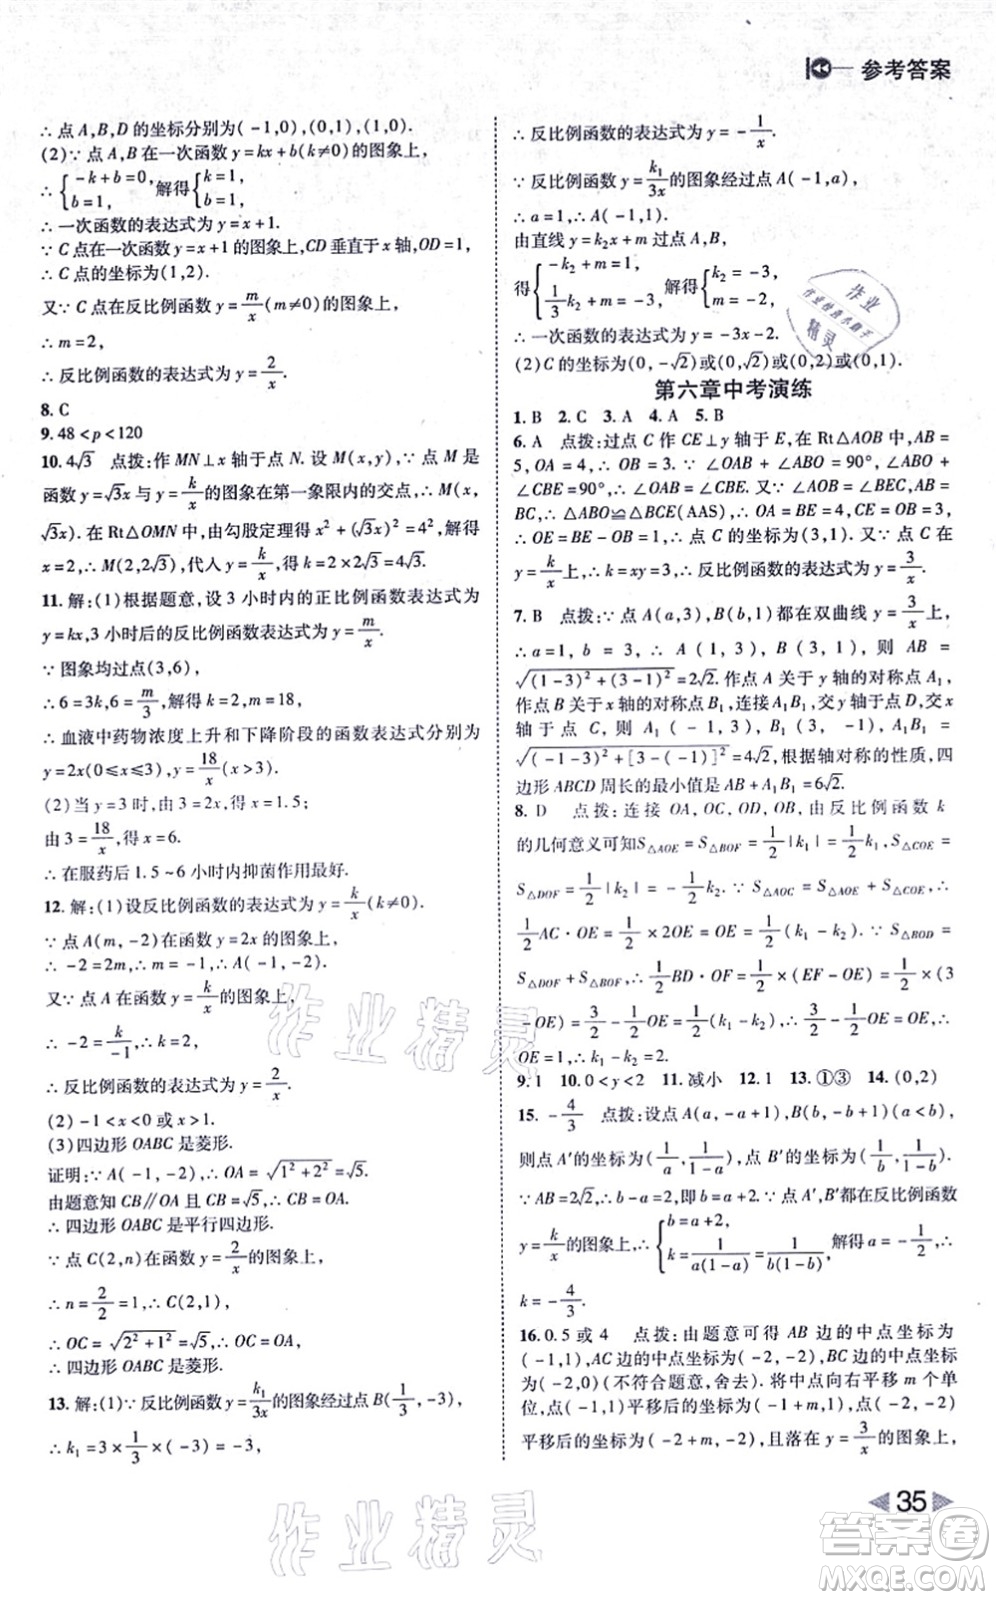 参考答案
∴点A,B,D的坐标分别为(-1,0),(0,1),(1,0).
(2)∵点A,B在一次函数y=kx+b(k≠0)的图象上,
∴{-k+b=0, b=1, 解得{k=1, b=1.
∴一次函数的表达式为y=x+1.
∵C点在一次函数y=x+1的图象上,CD垂直于x轴,OD=1,
∴C点的坐标为(1,2).
又∵C点在反比例函数y=m/x(m≠0)的图象上,
∴m=2,
∴反比例函数的表达式为y=2/x.
8. C
9. 48<p<120
10. 4√3 点拨:作MN⊥x轴于点N.设M(x,y),∵点M是
函数y=√3x与y=k/x的图象在第一象限内的交点,∴M(x,
√3x).在Rt△OMN中,由勾股定理得x²+(√3x)²=4²,解得
x=2,∴M(2,2√3),代入y=k/x,得k=2×2√3=4√3.
11. 解:(1)根据题意,设3小时内的正比例函数表达式为
y=kx,3小时后的反比例函数表达式为y=m/x.
∵图象均过点(3,6),
∴6=3k,6=m/3,∴k=2,m=18,
∴血液中药物浓度上升和下降阶段的函数表达式分别为
y=2x(0≤x<3),y=18/x(x≥3).
(2)当y=3时,由3=2x,得x=1.5;
由3=18/x,得x=6.
∴在服药后1.5~6小时内抑菌作用最好.
12. 解:(1)设反比例函数的表达式为y=k/x(k≠0).
∵点A(m,-2)在函数y=2x的图象上,
∴-2=2m,∴m=-1,∴A(-1,-2).
又∵点A在函数y=k/x的图象上,
∴-2=k/-1,∴k=2,
∴反比例函数的表达式为y=2/x.
(2)-1<x<0或x>1.
(3)四边形OABC是菱形.
证明:∵A(-1,-2),∴OA=√(1²+2²)=√5.
由题意知CB∥OA且CB=√5,∴CB=OA,
∴四边形OABC是平行四边形.
∵点C(2,n)在函数y=2/x的图象上,
∴n=2/2=1,∴C(2,1),
∴OC=√(2²+1²)=√5,∴OC=OA,
∴四边形OABC是菱形.
13. 解:(1)∵反比例函数y=k₁/3x的图象经过点B(1/3,-3),
∴k₁=3×1/3×(-3)=-3,
∴反比例函数的表达式为y=-1/x.
∵反比例函数y=k₁/3x的图象经过点A(-1,a),
∴a=1,∴A(-1,1).
由直线y=k₂x+m过点A,B,
得{-k₂+m=1, 1/3k₂+m=-3, 解得{k₂=-3, m=-2.
∴一次函数的表达式为y=-3x-2.
(2)C的坐标为(0,-√2)或(0,√2)或(0,1).
第六章中考演练
1. B 2. C 3. A 4. A 5. B
6. A 点拨:过点C作CE⊥y轴于E,在Rt△AOB中,AB=
5,OA=4,∴OB=3.∵∠OAB+∠ABO=90°,∠ABO+
∠CBE=90°,∴∠OAB=∠CBE.又∵∠AOB=∠BEC,AB=
BC,∴△ABO≌△BCE(AAS),∴OA=BE=4,CE=OB=3,
∴OE=BE-OB=1,∴点C的坐标为(3,1).又∵点C在
y=k/x上,∴k=xy=3,∴反比例函数的表达式为y=3/x.
7. B 点拨:∵点A(a,3),B(b,1)都在双曲线y=3/x上,
∴a=1,b=3,∴A(1,3),B(3,1),则AB=
√((1-3)²+(3-1)²)=2√2.作点A关于y轴的对称点A₁,
作点B关于x轴的对称点B₁,连接A₁B₁,交y轴于点D,交x
轴于点C,则A₁(-1,3),B₁(3,-1),A₁B₁=
√((-1-3)²+[3-(-1)]²)=4√2.根据轴对称的性质,四
边形ABCD周长的最小值是AB+A₁B₁=6√2.
8. D 点拨:连接OA,OC,OD,OB,由反比例函数k
的几何意义可知S△AOE=S△BOF=1/2|k₁|=1/2k₁,S△COE=
S△DOF=1/2|k₂|=-1/2k₂.∵S△AOC=S△AOE+S△COE,∴
1/2AC·OE=1/2×2OE=OE=1/2(k₁-k₂).∵S△BOD=
S△DOF+S△BOF,∴1/2BD·OF=1/2×(EF-OE)=1/2×(3
-OE)=3/2-1/2OE=1/2(k₁-k₂),∴3/2-1/2OE=OE,∴
OE=1,∴k₁-k₂=2.
9. 1 10. 0<y<2 11. 减小 12. 1 13. ①③ 14. (0,2)
15. -4/3 点拨:设点A(a,-a+1),B(b,-b+1)(a<b),
则点A'的坐标为(1/a,1/1-a),点B'的坐标为(1/b,1/1-b).
∵AB=2√2,∴b-a=2,即b=a+2.∵点A',B'都在反比例函数
y=k/x的图象上,∴{b=a+2, k=1/a(1-a)=1/b(1-b), 解得a=-1/2,∴
k=-4/3.
16. 0.5或4 点拨:由题意可得AB边的中点坐标为
(-1,1),AC边的中点坐标为(-2,-2),BC边的中点坐标为
(-2,0)(不符合题意,舍去).将中点向右平移m个单位
后,点(-1,1)平移后的坐标为(-1+m,1),点(-2,-2)
平移后的坐标为(-2+m,-2),且落在y=3/x的图象上,
35
作业精灵
作业精灵
作业
作业检查小助手
精灵
答案圈
MXQE.COM